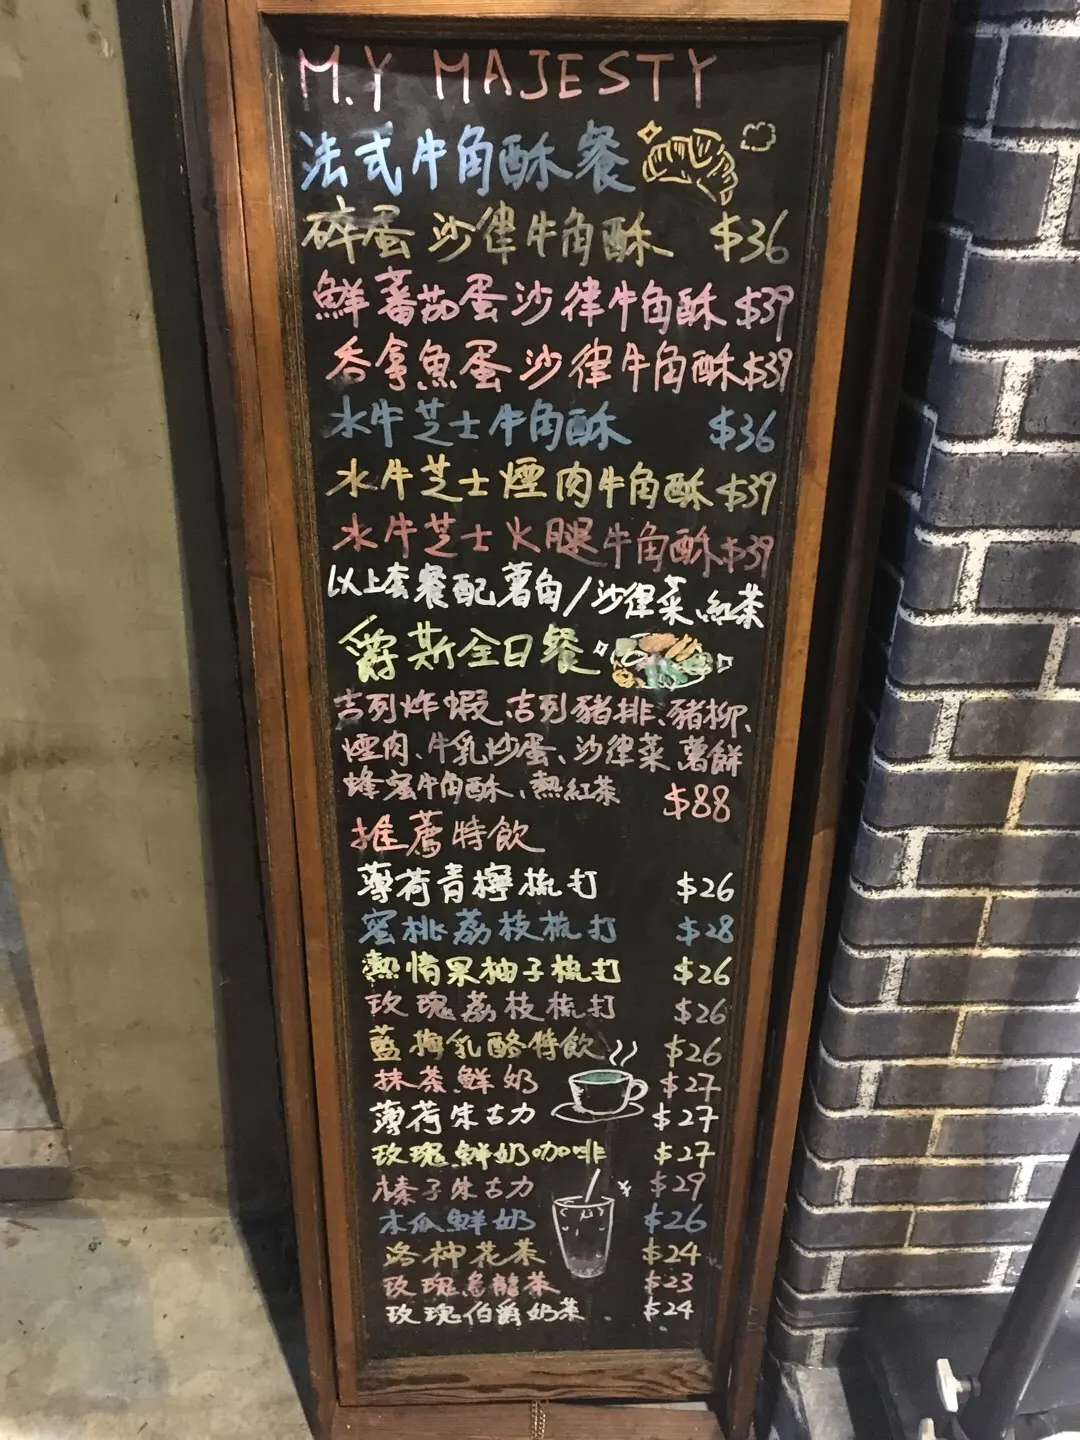 M.Y MAJESTY
法式牛角酥餐
碎蛋沙律牛角酥 $36
鮮蕃茄蛋沙律牛角酥 $39
吞拿魚蛋沙律牛角酥 $39
水牛芝士牛角酥 $36
水牛芝士煙肉牛角酥 $39
水牛芝士火腿牛角酥 $39
以上套餐配薯角/沙律菜、紅茶
爵斯全日餐
吉列炸蝦、吉列豬排、豬柳、
煙肉、牛乳炒蛋、沙律菜、薯餅
蜂蜜牛角酥、熱紅茶 $88
推薦特飲
薄荷青檸梳打 $26
蜜桃荔枝梳打 $28
熱情果柚子梳打 $26
玫瑰荔枝梳打 $26
藍梅乳酪特飲 $26
抹茶鮮奶 $27
薄荷朱古力 $27
玫瑰鮮奶咖啡 $27
榛子朱古力 $29
木瓜鮮奶 $26
洛神花茶 $24
玫瑰烏龍茶 $23
玫瑰伯爵奶茶 $24